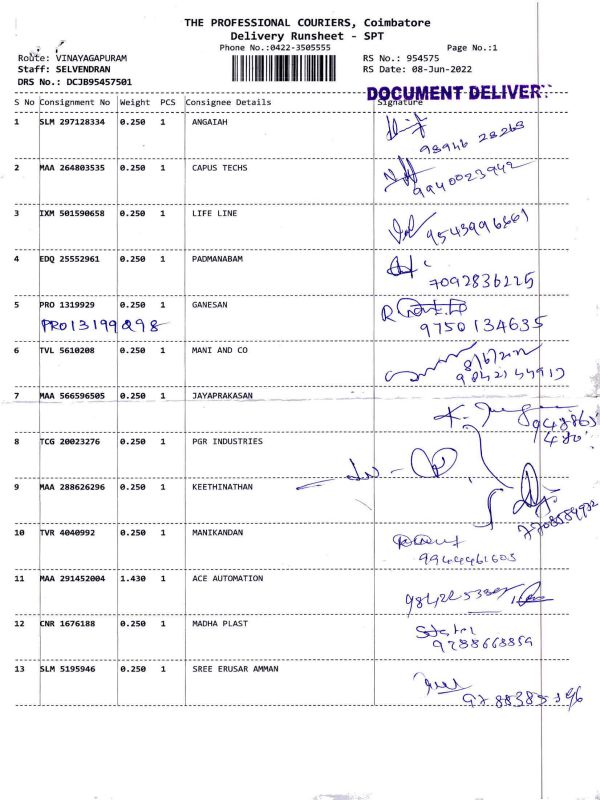 THE PROFESSIONAL COURIERS, Coimbatore
Delivery Runsheet - SPT
Phone No.:0422-3505555 Page No.:1
Route: VINAYAGAPURAM RS No.: 954575
Staff: SELVENDRAN RS Date: 08-Jun-2022
DRS No.: DCJB95457501
DOCUMENT DELIVER
S No Consignment No Weight PCS Consignee Details Signature
1 SLM 297128334 0.250 1 ANGAIAH
98946 28263
2 MAA 264803535 0.250 1 CAPUS TECHS
9940023942
3 IXM 501590658 0.250 1 LIFE LINE
9543996661
4 EDQ 25552961 0.250 1 PADMANABAM
7092836225
5 PRO 1319929 0.250 1 GANESAN
PRO13199298 9750134635
6 TVL 5610208 0.250 1 MANI AND CO
8/6/2022
7 MAA 566596505 0.250 1 JAYAPRAKASAN
8 TCG 20023276 0.250 1 PGR INDUSTRIES
9 MAA 288626296 0.250 1 KEETHINATHAN
10 TVR 4040992 0.250 1 MANIKANDAN
9944461603
11 MAA 291452004 1.430 1 ACE AUTOMATION
12 CNR 1676188 0.250 1 MADHA PLAST
9788668859
13 SLM 5195946 0.250 1 SREE ERUSAR AMMAN